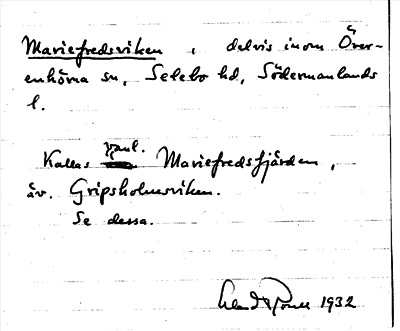 Mariefredsviken, delvis inom Över-
enhörna sn, Selebo hd, Södermanlands
l.
vanl.
Kallas Mariefredsfjärden,
äv. Gripsholmsviken.
Se dessa.
1932